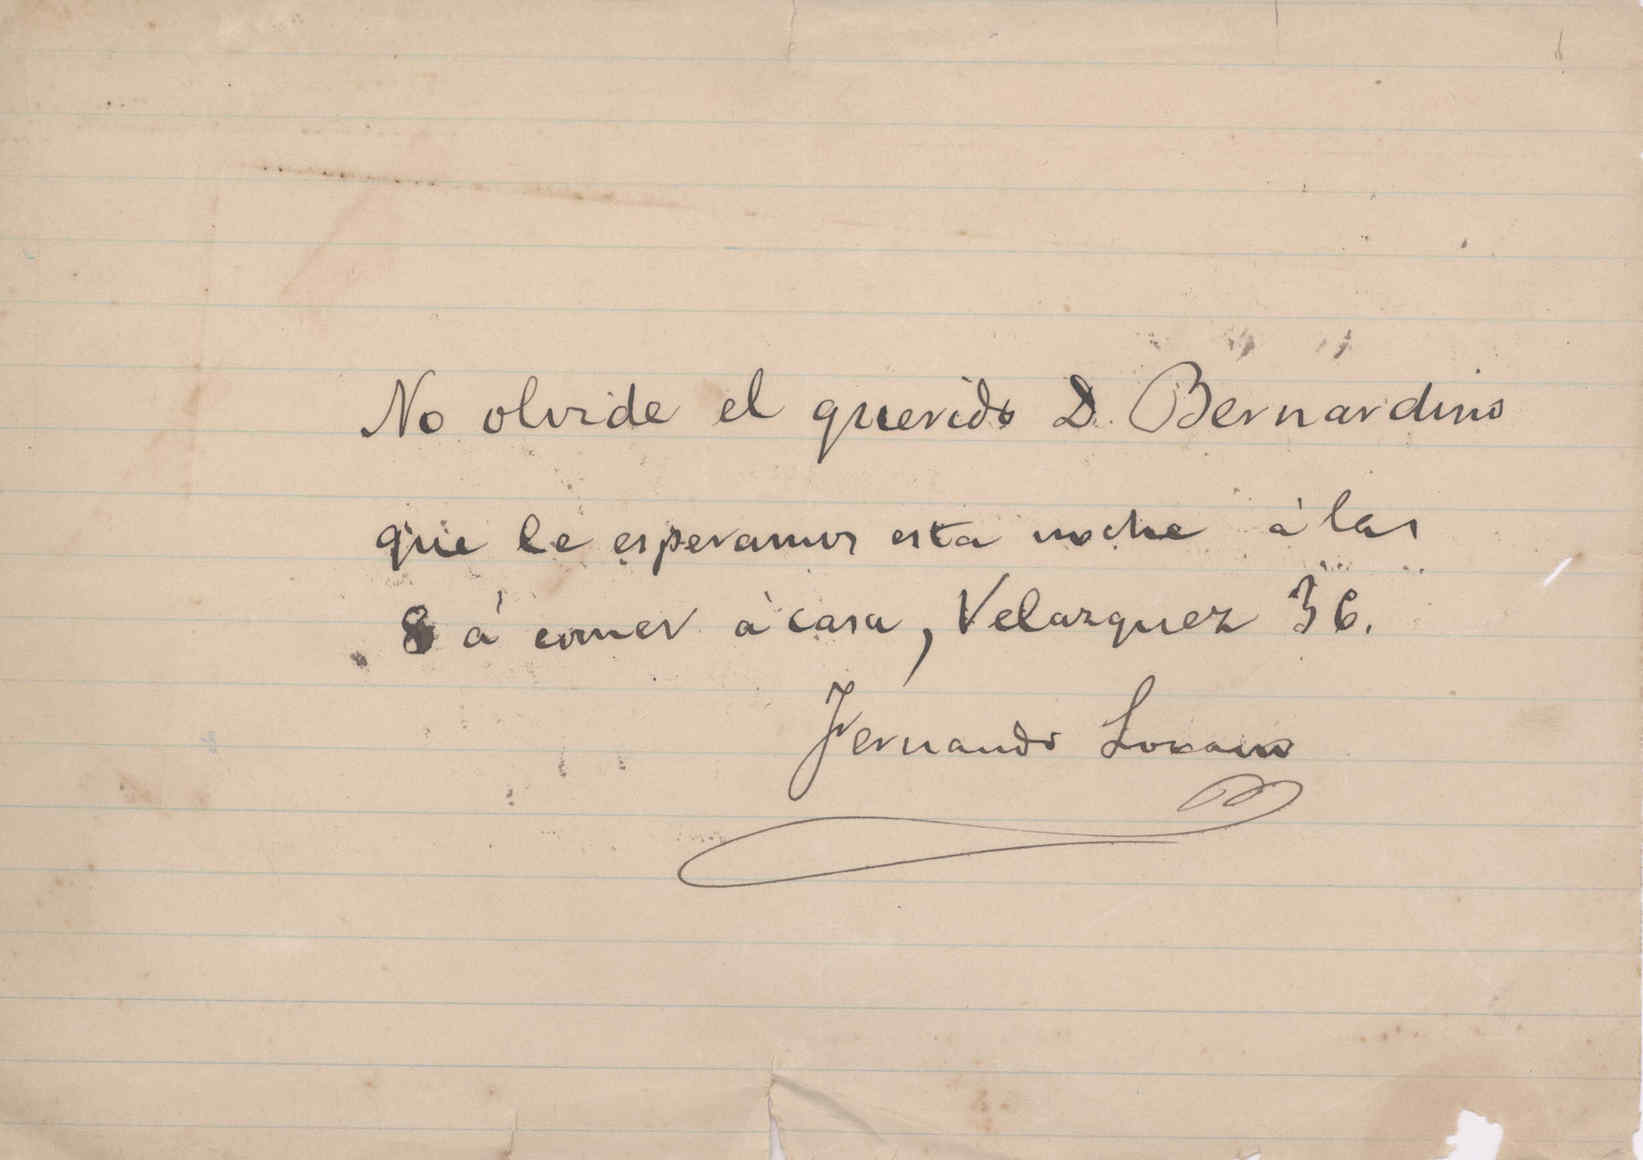 No olvide el querido D. Bernardino
que le esperamos esta noche à las
8 á comer à casa, Velazquez 36.
Fernando Lozano